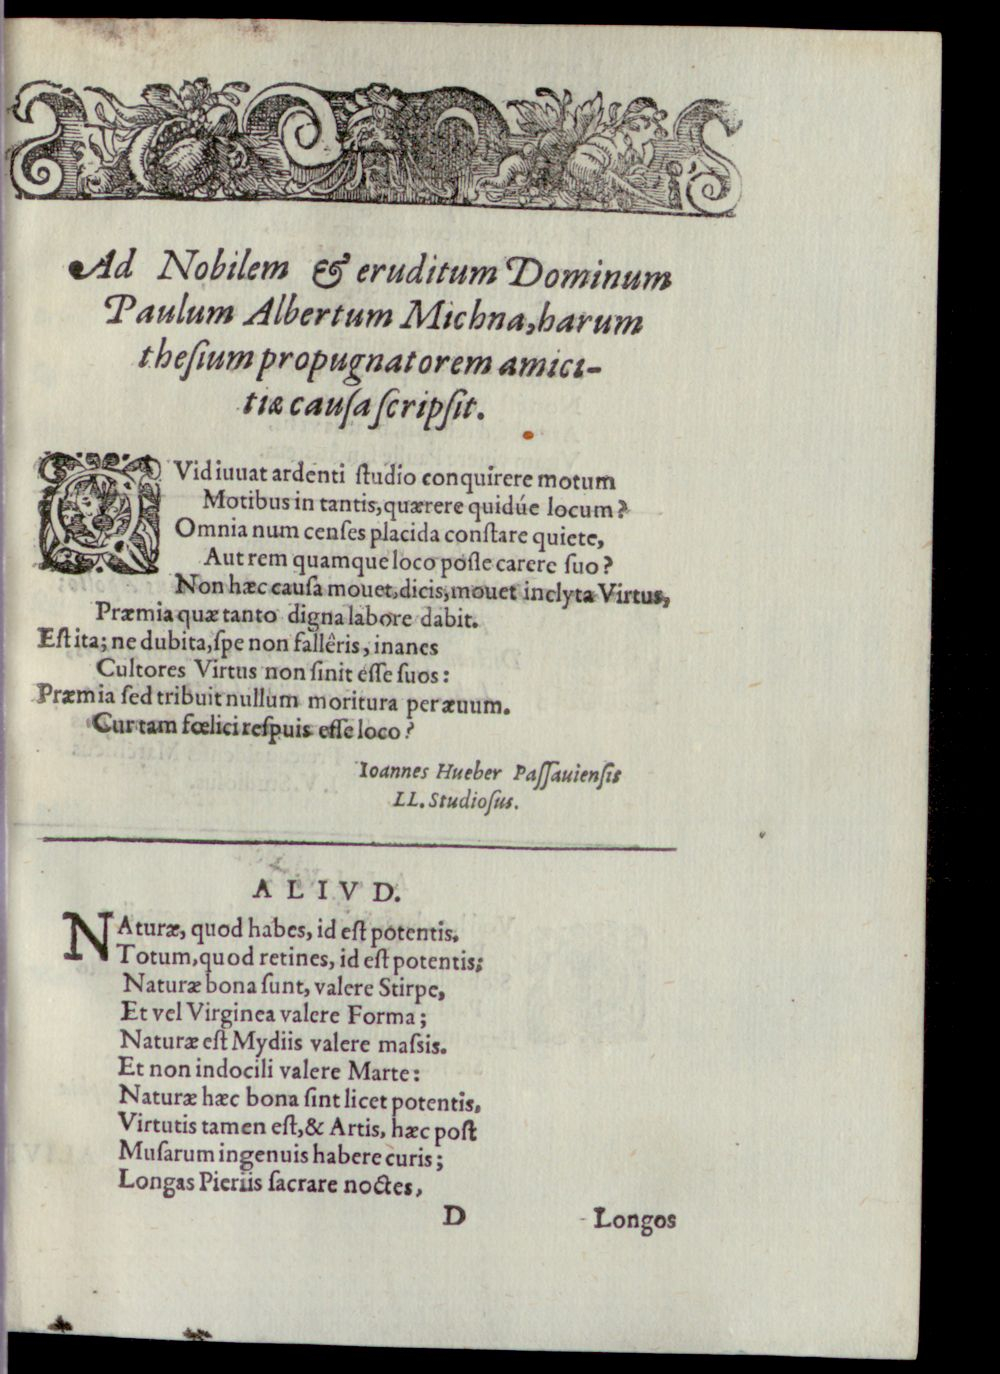 Ad Nobilem & eruditum Dominum
Paulum Albertum Michna, harum
theſium propugnatorem amici-
tiæ cauſa ſcripſit.
QVid iuuat ardenti ſtudio conquirere motum
Motibus in tantis, quærere quidúe locum?
Omnia num cenſes placida conſtare quiete,
Aut rem quamque loco poſſe carere ſuo?
Non hæc cauſa mouet, dicis, mouet inclyta Virtus,
Præmia quæ tanto digna labore dabit.
Eſt ita; ne dubita, ſpe non fallêris, inanes
Cultores Virtus non ſinit eſſe ſuos:
Præmia ſed tribuit nullum moritura per æuum.
Cur tam fœlici reſpuis eſſe loco?
Ioannes Hueber Paſſauienſis
LL. Studioſus.
ALIVD.
NAturæ, quod habes, id eſt potentis.
Totum, quod retines, id eſt potentis;
Naturæ bona ſunt, valere Stirpe,
Et vel Virginea valere Forma;
Naturæ eſt Mydiis valere maſsis.
Et non indocili valere Marte:
Naturæ hæc bona ſint licet potentis,
Virtutis tamen eſt, & Artis, hæc poſt
Muſarum ingenuis habere curis;
Longas Pieriis ſacrare noctes,
D Longos